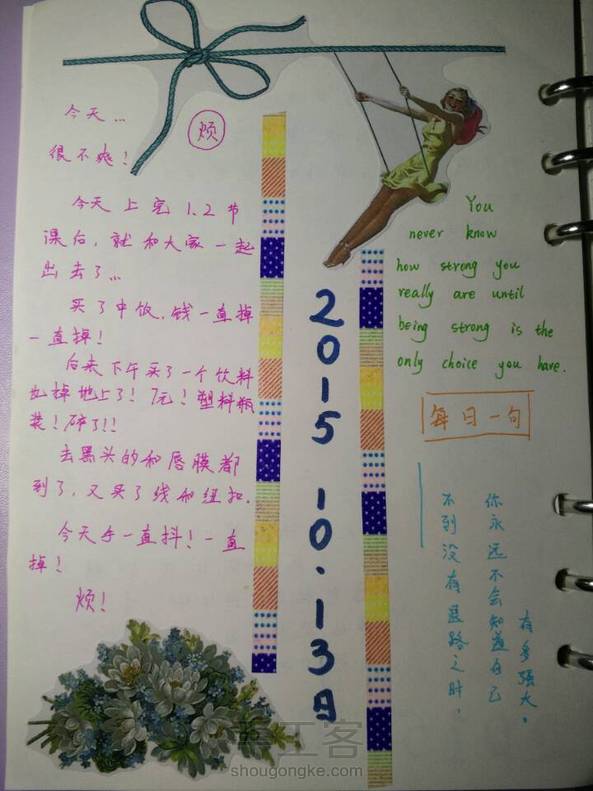 今天...
很不爽！
烦
今天上完1.2节
课后，就和大家一起
出去了...
买了中饭，钱一直掉
一直掉！
后来下午买了一个饮料
掉地上了！7元！塑料瓶
装！碎了!!!
去黑头的和唇膜都
到了，又买了线和纽扣.
今天手一直抖！一直
掉！
烦！
2015 10.13日
You
never know
how strong you
really are until
being strong is the
only choice you have.
每日一句
不到没有退路之时，
你永远不会知道自己
有多强大。
手工客
shougongke.com